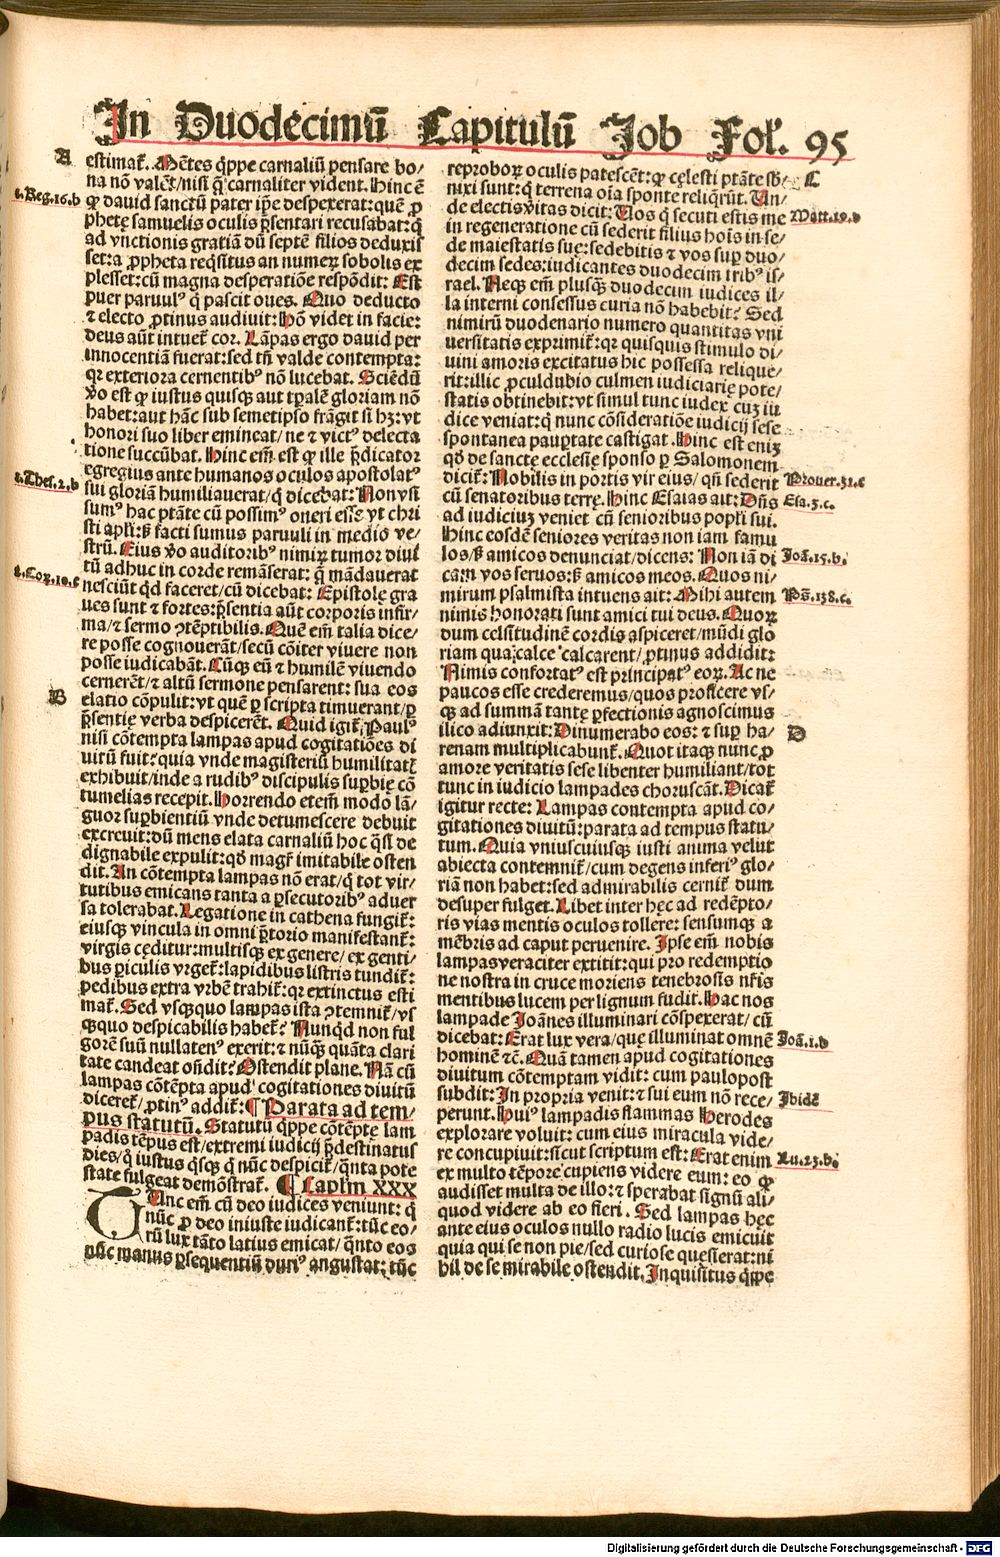 In Duodecimū Capitulū Job Fol. 95
A
estimat̃. Mētes q̄ppe carnaliū pensare bo/
na nō valēt/nisi q̄ carnaliter vident. Hinc ē
1.Reg.16.b
ꝙ dauid sanctū pater ip̄e despexerat: quē ꝓ
phetę samuelis oculis p̄sentari recusabat: q̇
ad vnctionis gratiā dū septē filios deduxis
set: a ꝓpheta reqͥsitus an numerꝝ sobolis ex
plesset: cū magna desperatiōe respōdit: Est
puer paruulꝰ q̇ pascit oues. Quo deducto
⁊ electo ꝓtinus audiuit: Hō videt in facie:
deus aūt intuet̃ cor. Lāpas ergo dauid per
innocentiā fuerat: sed tn̄ valde contempta:
qꝛ exteriora cernentibꝰ nō lucebat. Sciēdū
ṽo est ꝙ iustus quisqꝫ aut tp̄alē gloriam nō
habet: aut hāc sub semetipso frāgit si hꝫ: vt
honori suo liber emineat/ne ⁊ victꝰ delecta
tione succūbat. Hinc em̄ est ꝙ ille p̄dicator
egregius ante humanos oculos apostolatꝰ
2.Thes.2.b
sui gloriā humiliauerat/q̇ dicebat: Non vsi
sumꝰ hac ptāte cū possimꝰ oneri esse vt chri
sti apl̄i: sꝫ facti sumus paruuli in medio ve/
strū. Eius ṽo auditoribꝰ nimiꝝ tumor diui
tū adhuc in corde remāserat: q̄ mādauerat
2.Coꝝ.10.c
nesciūt qd̄ faceret/cū dicebat: Epistolę gra
ues sunt ⁊ fortes: p̄sentia aūt corporis infir/
ma/⁊ sermo ꝯtēptibilis. Quē em̄ talia dice/
re posse cognouerāt/secū cōiter viuere non
posse iudicabāt. Cūqꝫ eū ⁊ humilē viuendo
cernerēt/⁊ altū sermone pensarent: sua eos
B
elatio cōpulit: vt quē ꝑ scripta timuerant/ꝑ
p̄sentię verba despicerēt. Quid igit̃: Paulꝰ
nisi cōtempta lampas apud cogitatiōes di
uitū fuit? quia vnde magisteriū humilitatē
exhibuit/inde a rudibꝰ discipulis suꝑbię cō
tumelias recepit. Horrendo etem̄ modo lā/
guor suꝑbientiū vnde detumescere debuit
excreuit: dū mens elata carnaliū hoc q̄si de
dignabile expulit: qd̄ magr̄ imitabile osten
dit. An cōtempta lampas nō erat/q̇ tot vir/
tutibus emicans tanta a ꝑsecutoribꝰ aduer
sa tolerabat. Legatione in cathena fungit̃:
eiusqꝫ vincula in omni p̄torio manifestant̃:
virgis cęditur: multisqꝫ ex genere/ex genti/
bus ꝑiculis vrget̃: lapidibus listris tundit̃:
pedibus extra vrbē trahit̃: qꝛ extinctus esti
mat̃. Sed vsqꝫquo lampas ista ꝯtemnit̃/vs
qꝫquo despicabilis habet̃? Nunqͥd non ful
gorē suū nullatenꝰ exerit: ⁊ nūqͣꝫ quāta clari
tate candeat on̄dit? Ostendit plane. Nā cū
lampas cōtēpta apud cogitationes diuitū
diceret̃/ꝓtinꝰ addit̃: ¶ Parata ad tem/
pus statutū. Statutū q̄ppe cōtēptę lam
padis tēpus est/extremi iudicij p̄destinatus
dies/q̇ iustus qͥsqꝫ q̇ nūc despicit̃/qͣnta pote
state fulgeat demōstrat̃. ¶ Caplm̄ XXX
TUnc em̄ cū deo iudices veniunt: q̇
nūc ꝓ deo iniuste iudicant̃: tūc eo/
rū lux tāto latius emicat/qͣnto eos
nūc manus ꝑsequentiū duriꝰ angustat: tūc
C
reproboꝝ oculis patescēt: ꝙ cęlesti ptāte sb̄/
nixi sunt: q̇ terrena oīa sponte reliq̄rūt. Un/
Matt.19.d
de electis v̄itas dicit: Uos q̇ secuti estis me
in regeneratione cū sederit filius hoīs in se/
de maiestatis suę: sedebitis ⁊ vos suꝑ duo/
decim sedes: iudicantes duodecim tribꝰ is/
rael. Neqꝫ em̄ plusqͣꝫ duodecim iudices il/
la interni consessus curia nō habebit? Sed
nimirū duodenario numero quantitas vni
uersitatis exprimit̃: qꝛ quisquis stimulo di/
uini amoris excitatus hic possessa relique/
rit: illic ꝓculdubio culmen iudiciarię pote/
statis obtinebit: vt simul tunc iudex cuꝫ iu
dice veniat: q̇ nunc cōsideratiōe iudicij sese
spontanea pauꝑtate castigat. Hinc est eniꝫ
qd̄ de sanctę ecclesię sponso ꝑ Salomonem
Prouer.31.c
dicit̃: Nobilis in portis vir eius/qn̄ sederit
cū senatoribus terrę. Hinc Esaias ait: Dn̄s
Esa.3.c.
ad iudiciuꝫ veniet cū senioribus popl̄i sui.
Hinc eosdē seniores veritas non iam famu
Joā.15.b.
los/sꝫ amicos denunciat/dicens: Non iā di
cam vos seruos: sꝫ amicos meos. Quos ni/
Ps̄.138.c.
mirum psalmista intuens ait: Mihi autem
nimis honorati sunt amici tui deus. Quoꝝ
dum celsitudinē cordis aspiceret/mūdi glo
riam qua calce calcarent/ꝓtinus addidit:
Nimis confortatꝰ est principatꝰ eoꝝ. Ac ne
paucos esse crederemus/quos proficere vs/
qꝫ ad summā tantę ꝑfectionis agnoscimus
D
ilico adiunxit: Dinumerabo eos: ⁊ suꝑ ha/
renam multiplicabunt̃. Quot itaqꝫ nunc ꝓ
amore veritatis sese libenter humiliant/tot
tunc in iudicio lampades choruscāt. Dicat̃
igitur recte: Lampas contempta apud co/
gitationes diuitū: parata ad tempus statu/
tum. Quia vniuscuiusqꝫ iusti anima velut
abiecta contemnit̃/cum degens inferiꝰ glo/
riā non habet: sed admirabilis cernit̃ dum
desuper fulget. Libet inter hęc ad redēpto/
ris vias mentis oculos tollere: sensumqꝫ a
mēbris ad caput peruenire. Ipse em̄ nobis
lampas veraciter extitit: qui pro redemptio
ne nostra in cruce moriens tenebrosis nr̄is
mentibus lucem per lignum fudit. Hac nos
lampade Joānes illuminari cōspexerat/cū
Joā.1.b
dicebat: Erat lux vera/quę illuminat omnē
hominē ⁊c̄. Quā tamen apud cogitationes
diuitum cōtemptam vidit: cum paulopost
Jbidē
subdit: In propria venit: ⁊ sui eum nō rece/
perunt. Huiꝰ lampadis flammas Herodes
explorare voluit: cum eius miracula vide/
Lu.23.b.
re concupiuit: sicut scriptum est: Erat enim
ex multo tēpore cupiens videre eum: eo ꝙ
audisset multa de illo: ⁊ sperabat signū ali/
quod videre ab eo fieri. Sed lampas hęc
ante eius oculos nullo radio lucis emicuit
quia qui se non pie/sed curiose quesierat: ni
hil de se mirabile ostendit. Inquisitus q̄ppe
Digitalisierung gefördert durch die Deutsche Forschungsgemeinschaft - DFG